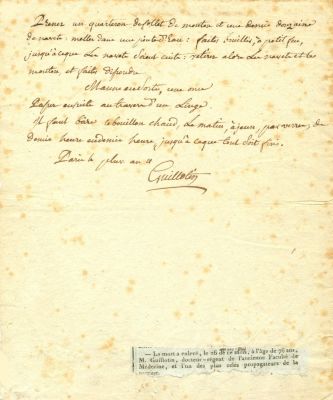 Prenez un quarteron de collet de mouton et une demie douzaine
de navets: mettez dans une pinte d'Eau: faites bouillir, à petit feu,
jusqu'à ceque Les navets Soient cuits: retirez alors Les navets et le
mouton, et faites dissoudre
Manne une once
Passez ensuite au travers d'un Linge
il faut boire ce bouillon chaud, Le matin, à jeun, par verres, de
demie heure en demie heure jusqu'à ceque tout Soit fini.
Paris le an
Guillotin
— La mort a enlevé, le 26 de ce mois, à l'âge de 76 ans,
M. Guillotin, docteur-régent de l'ancienne Faculté de
Médecine, et l'un des plus zélés propagateurs de la